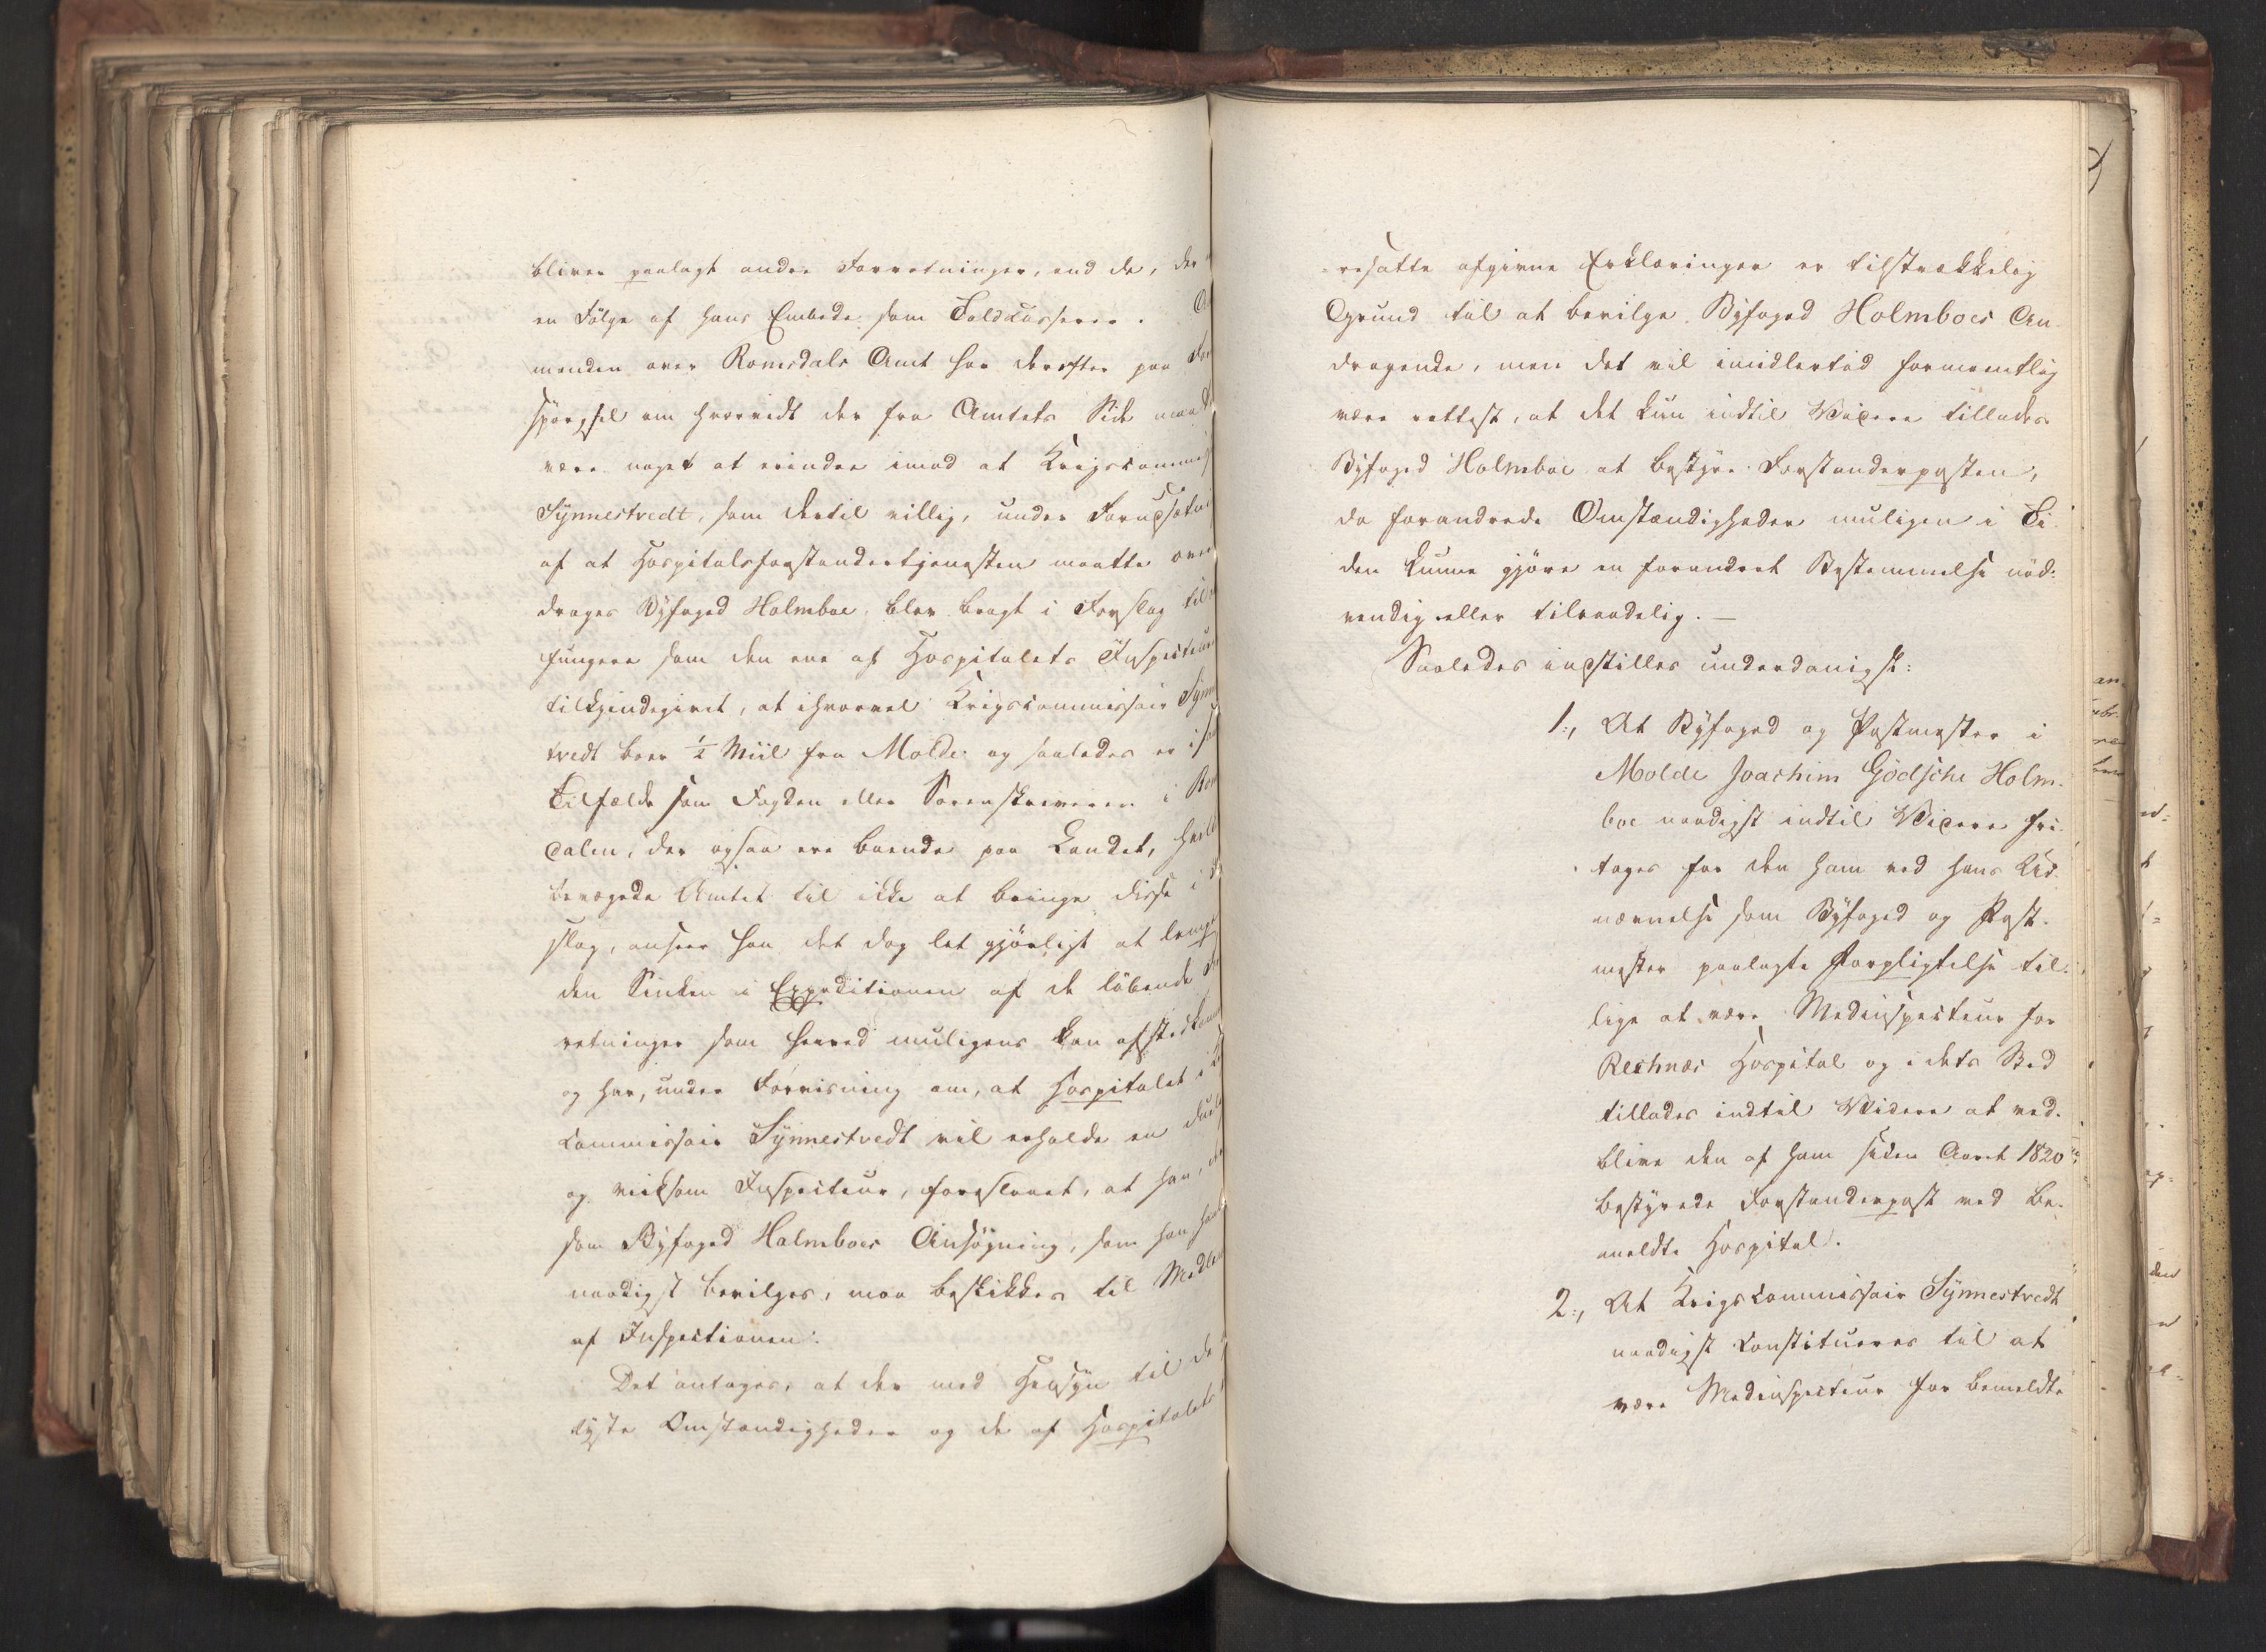 bliver paalagt andre Forretninger, end de, der
en Fölge af hans Embede som Toldkasserer.
manden over Romsdals Amt har derefter paa For
spørgsel om hvorvidt der fra Amtets Side maatte
være noget at erindre imod at Krigscommiss
Synnestvedt, som dertil villig, under Forudsætni
af at Hospitalsforstandertjenesten maatte over
drages Byfoged Holmboe, blev bragt i Forslag til
fungere som den ene af Hospitalets Inspecteur
tilkjendegivet, at ihvorvel Krigscommissair Synn
tvedt boer ½ Miil fra Molde og saaledes er i sam
Tilfælde som Fogden eller Sorenskriveren i Rom
dalen, der ogsaa ere boende paa Landet, hvilk
bevægede Amtet til ikke at bringe disse i
slag, anseer han det dog let gjørligt at
den Sinken i Expeditionen af de løbende For
retninger som herved muligens kan afstedkom
og har, under Formening om, at Hospitalet i
commissair Synnestvedt vil erholde en duelig
og virksom Inspecteur, foreslaaet, at han,
som Byfoged Holmboes Ansøgning, som han
naadigst bevilges, maa beskikkes til Medlem
af Inspectionen.
Det antages, at der med Hensyn til de
lyste Omstændigheder og de af Hospitalets
resatte afgivne Erklæringer er tilstrækkelig
Grund til at bevilge Byfoged Holmboes An-
dragende, men det vil imidlertid formeentlig
være rettest, at det kun indtil Videre tillades
Byfoged Holmboe at bestyre Forstanderposten,
da forandrede Omstændigheder muligen i Ti-
den kunne gjöre en forandret Bestemmelse nöd-
vendig eller tilraadelig. —
Saaledes indstilles underdanigst:
1:, At Byfoged og Postmester i
Molde Joachim Gödsche Holm-
boe naadigst indtil Videre fri-
tages for den ham ved hans Ud-
nævnelse som Byfoged og Post-
mester paalagte Forpligtelse til-
lige at være Medinspecteur for
Rechnæs Hospital og i dets Sted
tillades indtil Videre at ved-
blive den af ham siden Aaret 1820
bestyrede Forstanderpost ved be-
meldte Hospital.
2:, At Krigscommissair Synnestvedt
naadigst constitueres til at
være Medinspecteur for bemeldte